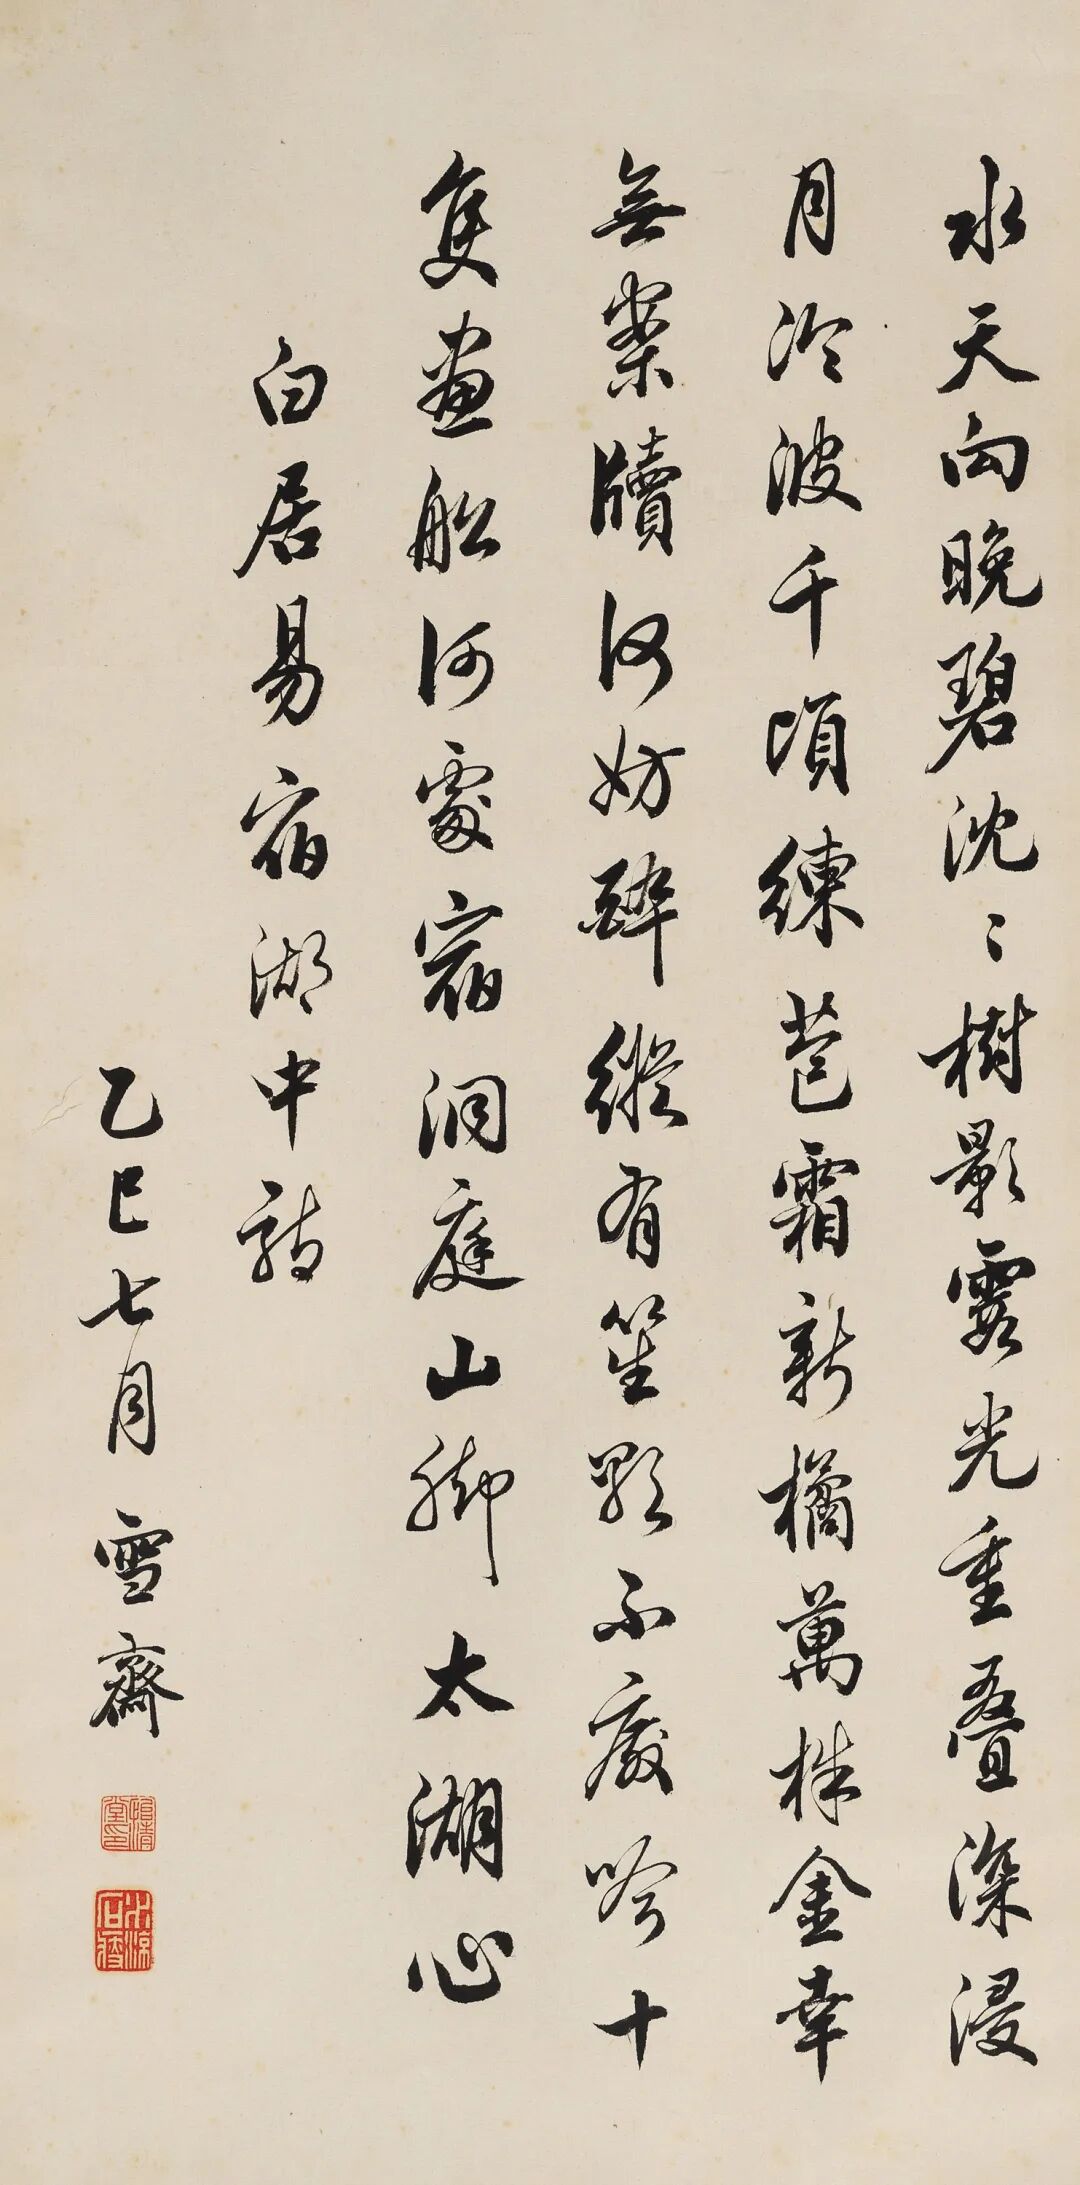 水天向晚碧沈〻樹影霞光重疊深浸
月冷波千頃練苞霜新橘萬株金幸
無案牘何妨醉縱有笙歌不廢吟十
隻畫船何處宿洞庭山脚太湖心
白居易宿湖中詩
乙巳七月 雪齋